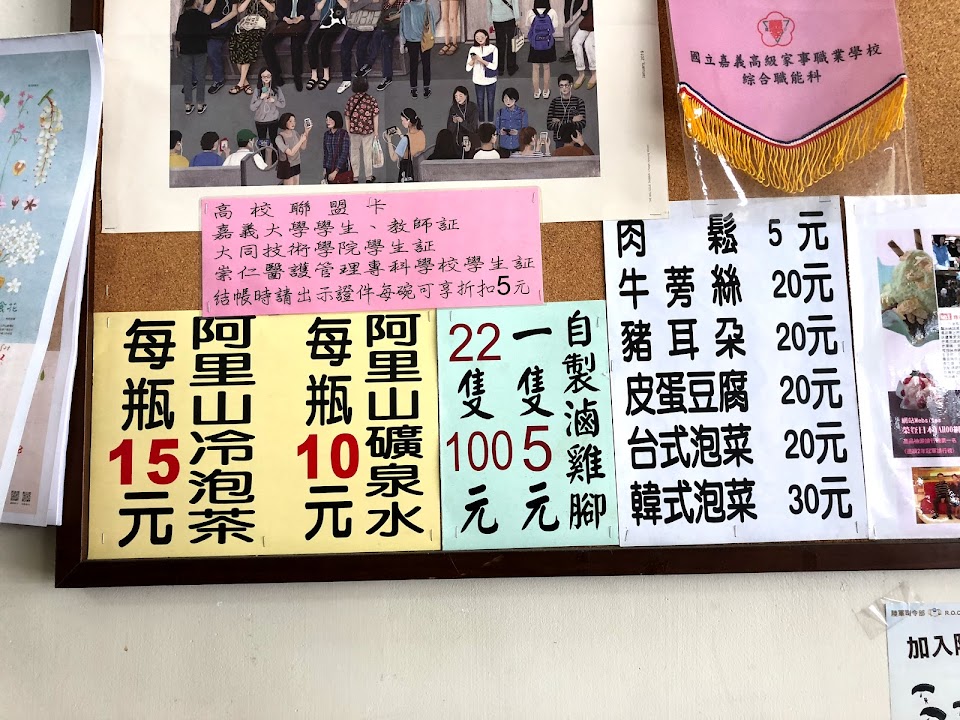 國立嘉義高級家事職業學校
綜合職能科
高校聯盟卡
嘉義大學學生、教師証
大同技術學院學生証
崇仁醫護管理專科學校學生証
結帳時請出示證件每碗可享折扣5元
阿里山礦泉水
每瓶10元
阿里山冷泡茶
每瓶15元
自製滷雞腳
一隻5元
22隻100元
肉鬆 5元
牛蒡絲 20元
豬耳朵 20元
皮蛋豆腐 20元
台式泡菜 20元
韓式泡菜 30元
加入